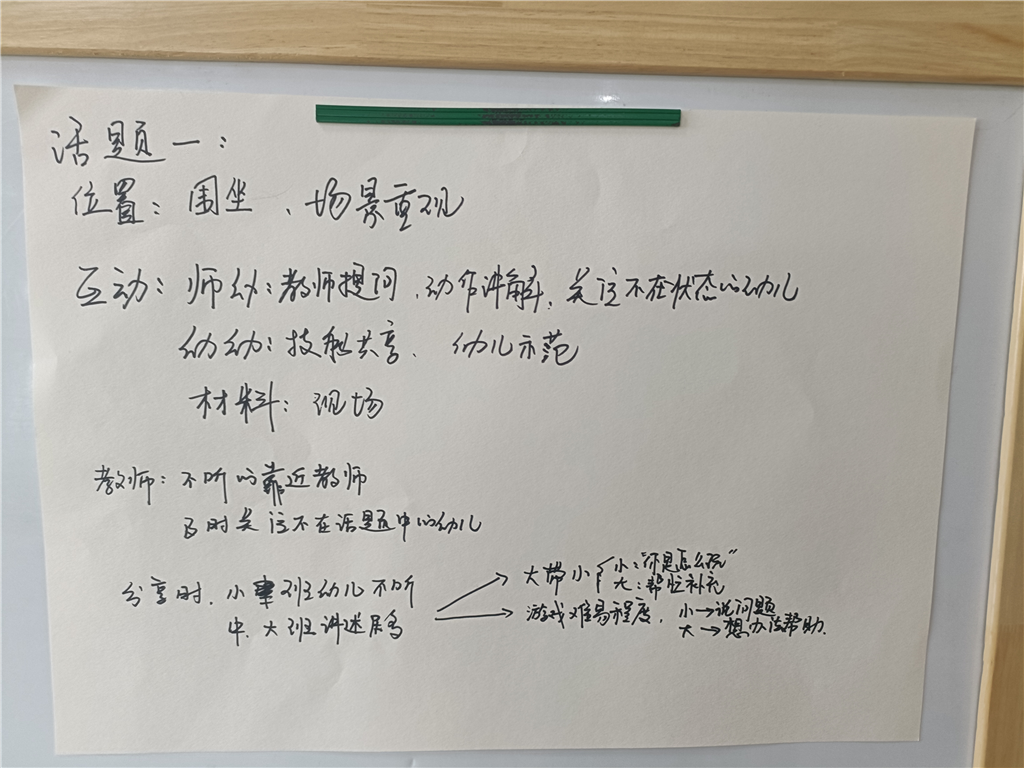 话题一：
位置：围坐、场景重现
互动：师幼：教师提问、动作讲解、关注不在状态的幼儿
幼幼：技能共享、幼儿示范
材料：现场
教师：不听的靠近教师
及时关注不在话题中的幼儿
分享时，小班幼儿不听
中、大班讲述居多
大带小 小：“你是怎么玩”
大：帮忙补充
游戏难易程度，小→说问题
大→想办法帮助.